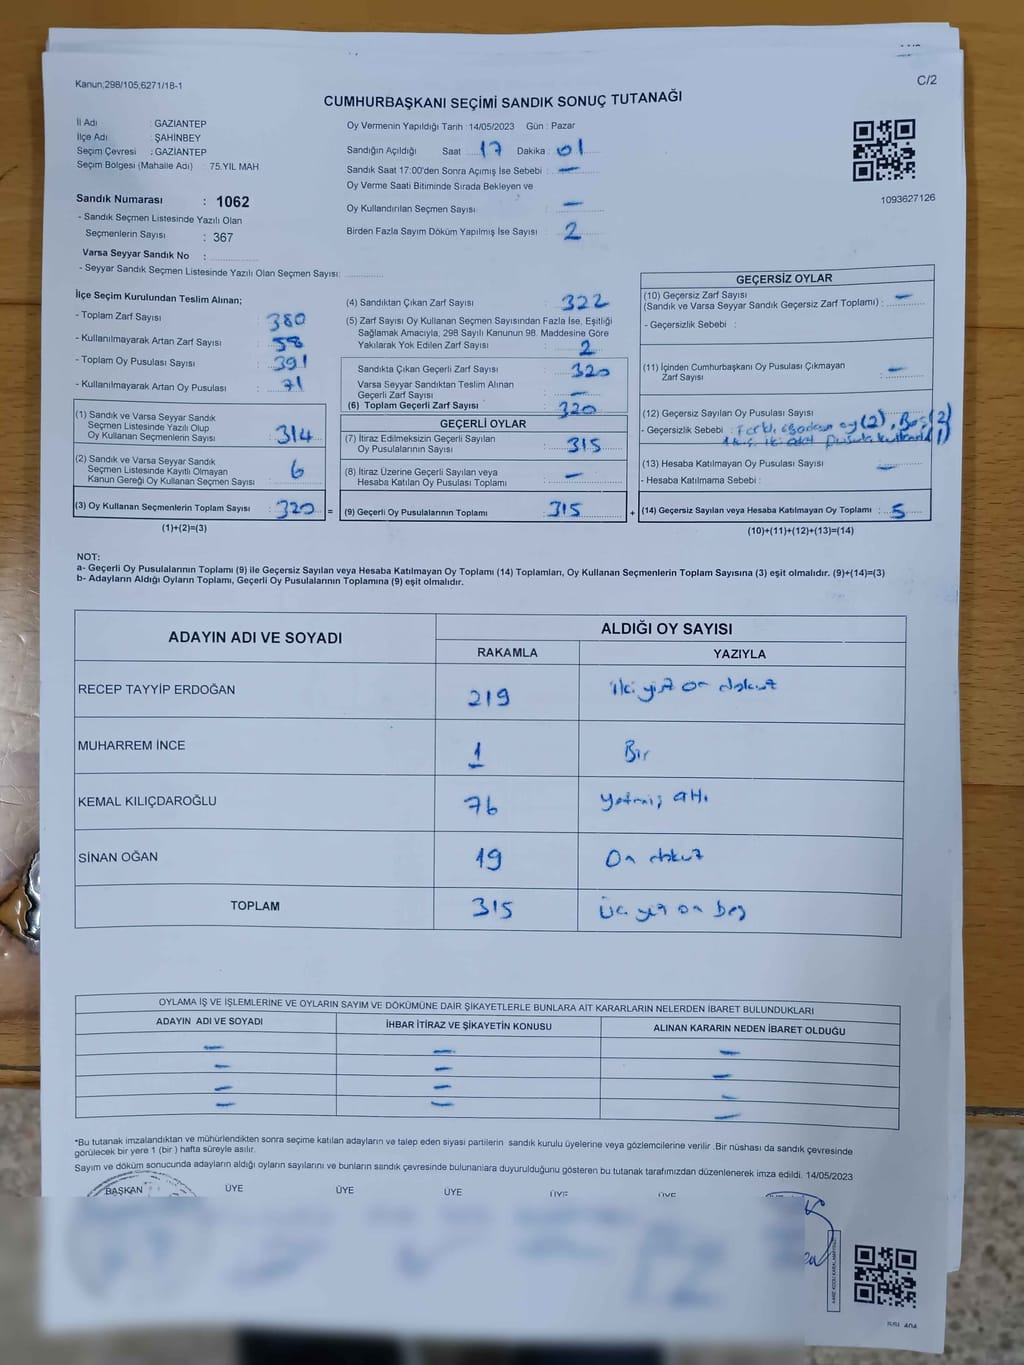 Kanun;298/105;6271/18-1
C/2
CUMHURBAŞKANI SEÇİMİ SANDIK SONUÇ TUTANAĞI
İl Adı : GAZİANTEP
İlçe Adı : ŞAHİNBEY
Seçim Çevresi : GAZİANTEP
Seçim Bölgesi (Mahalle Adı) : 75.YIL MAH
Sandık Numarası : 1062
- Sandık Seçmen Listesinde Yazılı Olan
Seçmenlerin Sayısı : 367
Varsa Seyyar Sandık No :
- Seyyar Sandık Seçmen Listesinde Yazılı Olan Seçmen Sayısı:
Oy Vermenin Yapıldığı Tarih : 14/05/2023 Gün : Pazar
Sandığın Açıldığı Saat 17 Dakika : 01
Sandık Saat 17:00'den Sonra Açımış İse Sebebi : —
Oy Verme Saati Bitiminde Sırada Bekleyen ve
Oy Kullandırılan Seçmen Sayısı : —
Birden Fazla Sayım Döküm Yapılmış İse Sayısı : 2
1093627126
İlçe Seçim Kurulundan Teslim Alınan;
- Toplam Zarf Sayısı : 380
- Kullanılmayarak Artan Zarf Sayısı : 58
- Toplam Oy Pusulası Sayısı : 391
- Kullanılmayarak Artan Oy Pusulası : 71
(1) Sandık ve Varsa Seyyar Sandık
Seçmen Listesinde Yazılı Olup
Oy Kullanan Seçmenlerin Sayısı : 314
(2) Sandık ve Varsa Seyyar Sandık
Seçmen Listesinde Kayıtlı Olmayan
Kanun Gereği Oy Kullanan Seçmen Sayısı : 6
(3) Oy Kullanan Seçmenlerin Toplam Sayısı : 320 =
(1)+(2)=(3)
(4) Sandıktan Çıkan Zarf Sayısı : 322
(5) Zarf Sayısı Oy Kullanan Seçmen Sayısından Fazla İse, Eşitliği
Sağlamak Amacıyla, 298 Sayılı Kanunun 98. Maddesine Göre
Yakılarak Yok Edilen Zarf Sayısı : 2
Sandıkta Çıkan Geçerli Zarf Sayısı : 320
Varsa Seyyar Sandıktan Teslim Alınan
Geçerli Zarf Sayısı : —
(6) Toplam Geçerli Zarf Sayısı : 320
GEÇERLİ OYLAR
(7) İtiraz Edilmeksizin Geçerli Sayılan
Oy Pusulalarının Sayısı : 315
(8) İtiraz Üzerine Geçerli Sayılan veya
Hesaba Katılan Oy Pusulası Toplamı : —
(9) Geçerli Oy Pusulalarının Toplamı : 315 +
GEÇERSİZ OYLAR
(10) Geçersiz Zarf Sayısı
(Sandık ve Varsa Seyyar Sandık Geçersiz Zarf Toplamı) : —
- Geçersizlik Sebebi :
(11) İçinden Cumhurbaşkanı Oy Pusulası Çıkmayan
Zarf Sayısı : —
(12) Geçersiz Sayılan Oy Pusulası Sayısı :
- Geçersizlik Sebebi : oy (2), Boş (2)
iki adet pusula (1)
(13) Hesaba Katılmayan Oy Pusulası Sayısı : —
- Hesaba Katılmama Sebebi :
(14) Geçersiz Sayılan veya Hesaba Katılmayan Oy Toplamı : 5
(10)+(11)+(12)+(13)=(14)
NOT:
a- Geçerli Oy Pusulalarının Toplamı (9) ile Geçersiz Sayılan veya Hesaba Katılmayan Oy Toplamı (14) Toplamları, Oy Kullanan Seçmenlerin Toplam Sayısına (3) eşit olmalıdır. (9)+(14)=(3)
b- Adayların Aldığı Oyların Toplamı, Geçerli Oy Pusulalarının Toplamına (9) eşit olmalıdır.
ADAYIN ADI VE SOYADI
ALDIĞI OY SAYISI
RAKAMLA YAZIYLA
RECEP TAYYİP ERDOĞAN 219 iki yüz on dokuz
MUHARREM İNCE 1 Bir
KEMAL KILIÇDAROĞLU 76 yetmiş altı
SİNAN OĞAN 19 On dokuz
TOPLAM 315 Üç yüz on beş
OYLAMA İŞ VE İŞLEMLERİNE VE OYLARIN SAYIM VE DÖKÜMÜNE DAİR ŞİKAYETLERLE BUNLARA AİT KARARLARIN NELERDEN İBARET BULUNDUKLARI
ADAYIN ADI VE SOYADI İHBAR İTİRAZ VE ŞİKAYETİN KONUSU ALINAN KARARIN NEDEN İBARET OLDUĞU
— — —
— — —
— — —
— — —
*Bu tutanak imzalandıktan ve mühürlendikten sonra seçime katılan adayların ve talep eden siyasi partilerin sandık kurulu üyelerine veya gözlemcilerine verilir .Bir nüshası da sandık çevresinde
görülecek bir yere 1 (bir ) hafta süreyle asılır.
Sayım ve döküm sonucunda adayların aldığı oyların sayılarını ve bunların sandık çevresinde bulunanlara duyurulduğunu gösteren bu tutanak tarafımızdan düzenlenerek imza edildi. 14/05/2023
BAŞKAN ÜYE ÜYE ÜYE ÜYE ÜYE